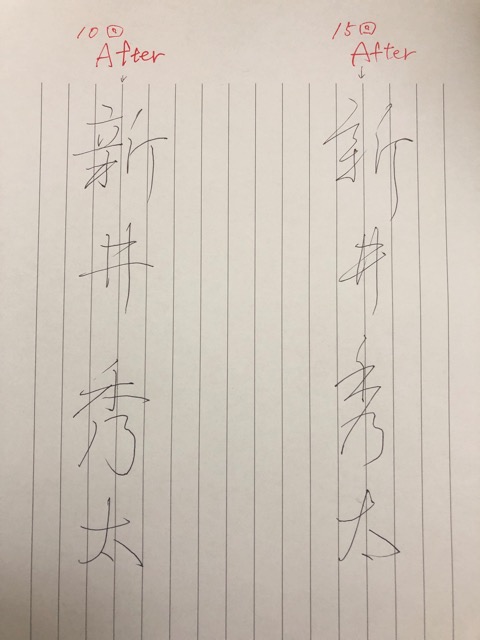 10回
After
新井秀太
15回
After
新井秀太